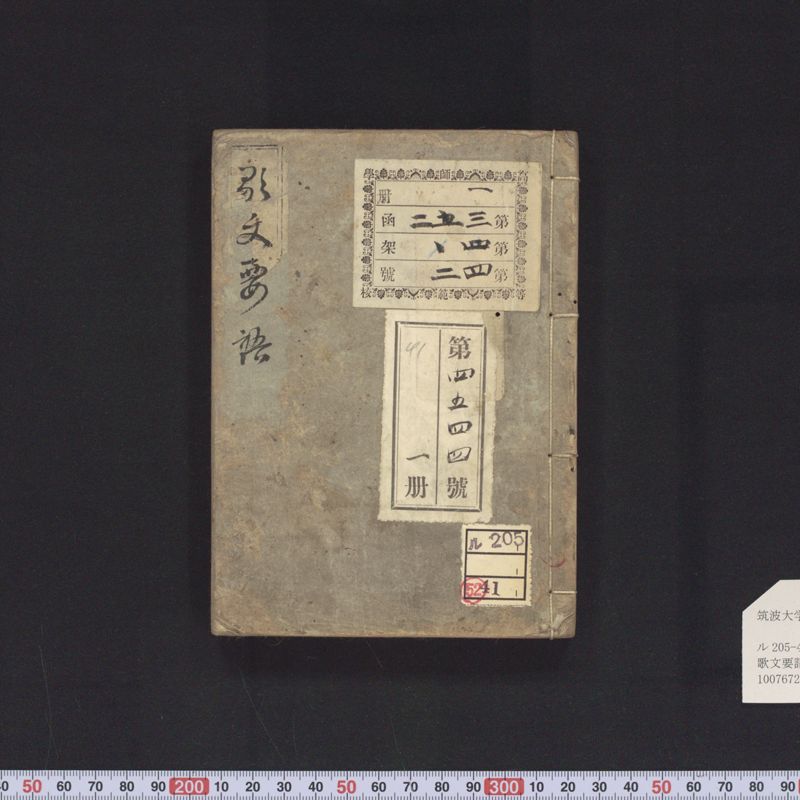 歌文要語
高等師範學校
一册
第三五二函
第四、架
第四二號
第四五四四號
41
一册
ル 205
52
41
筑波大学
ル 205-4
歌文要語
1007672
50 60 70 80 90 200 10 20 30 40 50 60 70 80 90 300 10 20 30 40 50 60 70 80 90